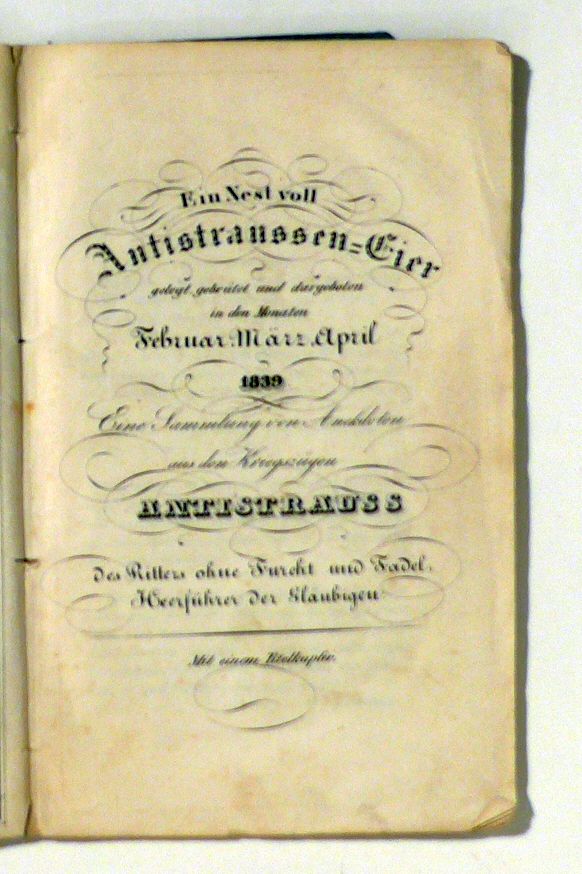 Ein Nest voll
Antistraussen=Eier
gelegt, gebrütet und dargeboten
in den Monaten
Februar, März, April
1839
Eine Sammlung von Anekdoten
aus den Kriegszügen
ANTISTRAUSS
des Ritters ohne Furcht und Tadel,
Heerführer der Gläubigen.
Mit einem Titelkupfer.